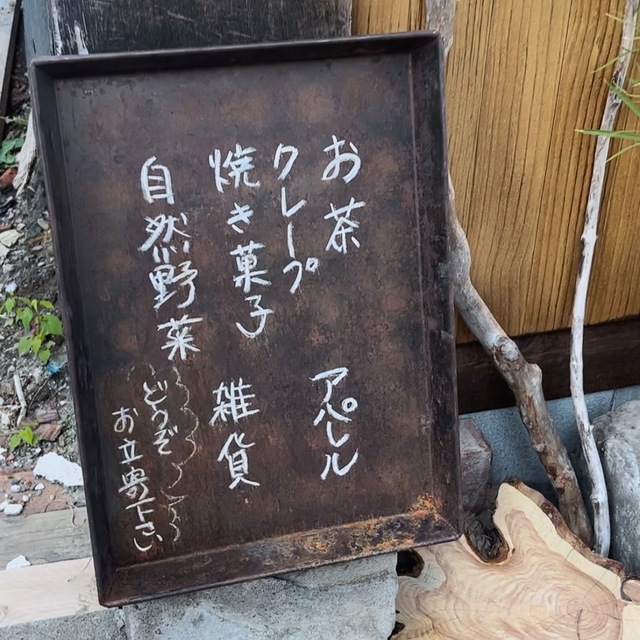 お茶
アパレル
クレープ
焼き菓子
雑貨
自然野菜
どうぞ
お立寄下さい